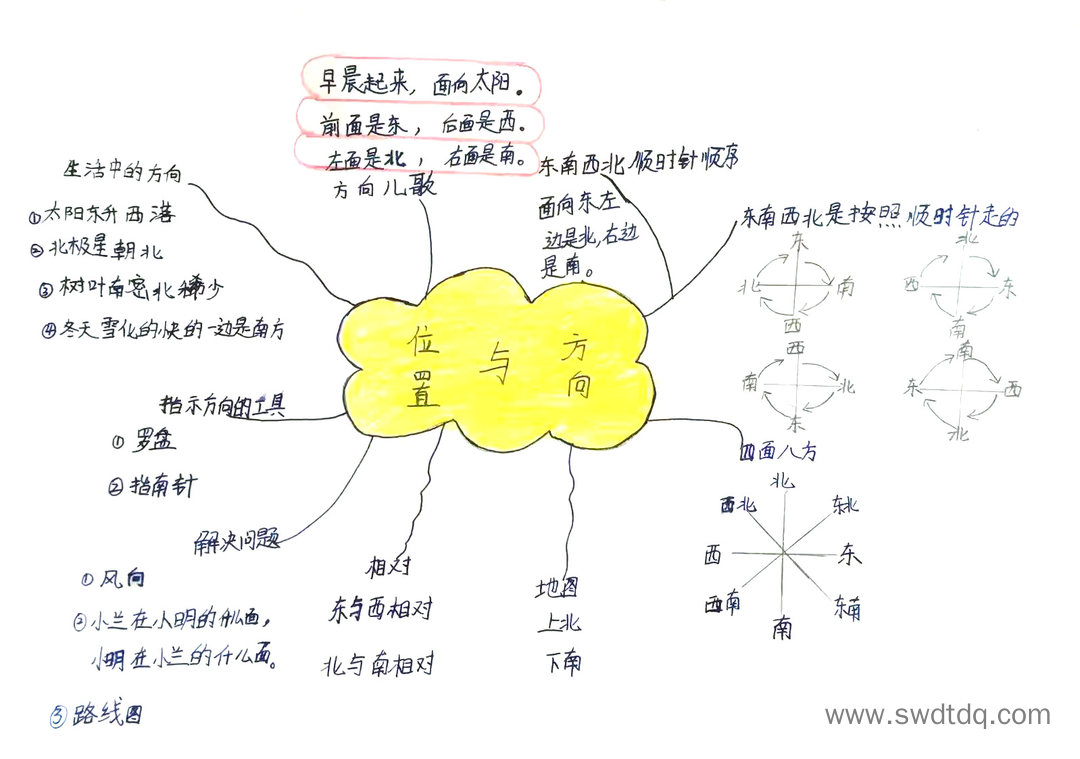 早晨起来，面向太阳。
前面是东，后面是西。
左面是北，右面是南。
方向儿歌
生活中的方向
①太阳东升西落
②北极星朝北
③树叶南密北稀少
④冬天雪化的快的一边是南方
东南西北顺时针顺序
面向东左
边是北，右边
是南。
东南西北是按照顺时针走的
东
北 南
西
北
西 东
南
西
南 北
东
南
东 西
北
位置
与
方向
指示方向的工具
①罗盘
②指南针
四面八方
北
西北 东北
西 东
西南 东南
南
解决问题
①风向
②小兰在小明的什么面，
小明在小兰的什么面。
③路线图
相对
东与西相对
北与南相对
地图
上北
下南
www.swdtdq.com